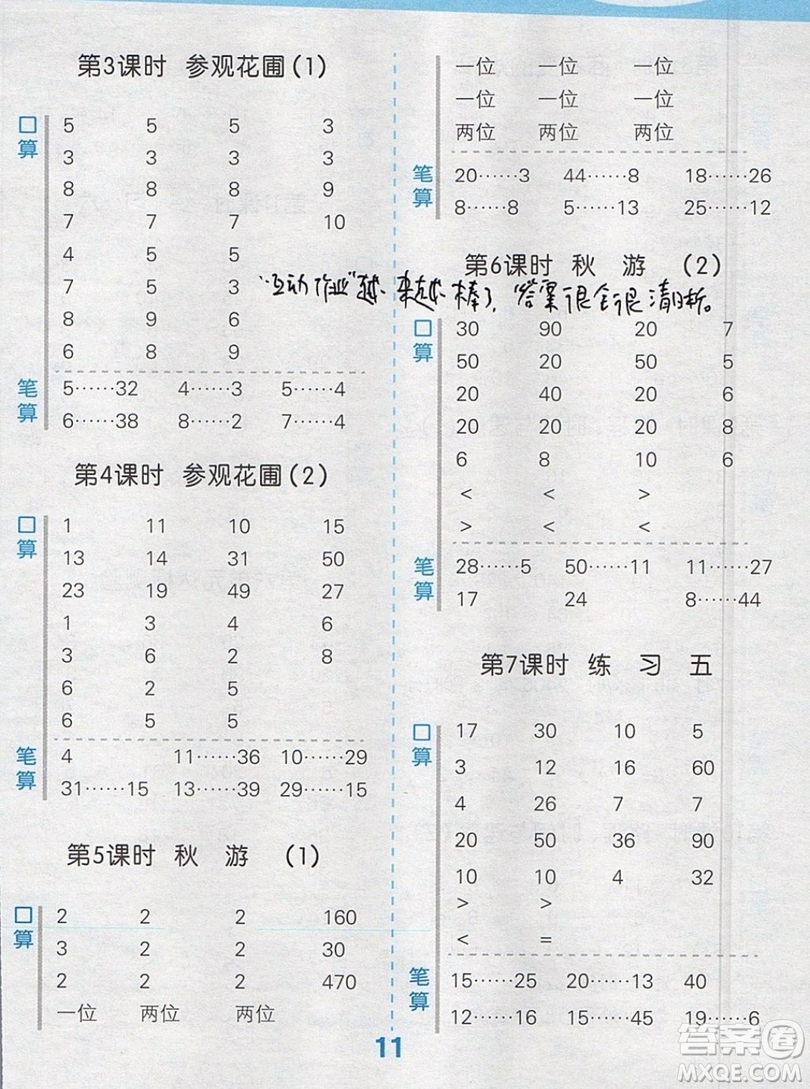 第3课时 参观花圃(1)
口算
5 5 5 3
3 3 3 3
8 8 8 9
7 7 7 10
4 5 5
7 5 3
8 9 6
6 8 9
笔算
5……32 4……3 5……4
6……38 8……2 7……4
第4课时 参观花圃(2)
口算
1 11 10 15
13 14 31 50
23 19 49 27
1 3 4 4
3 6 2 8
6 2 2
6 5 5
笔算
4 11……36 10……29
31……15 13……39 29……15
第5课时 秋 游 (1)
口算
2 2 2 160
3 2 2 30
2 2 2 470
一位 两位 两位
一位 一位 一位
一位 一位 一位
两位 两位 两位
笔算
20……3 44……8 18……26
8……8 5……13 25……12
第6课时 秋 游 (2)
“互动作业”越来越棒了，答案很全很清晰。
口算
30 90 20 7
50 20 50 5
20 40 20 6
20 20 20 8
6 8 10 6
< < >
> < <
笔算
28……5 50……11 11……27
17 24 8……44
第7课时 练 习 五
口算
17 30 10 5
3 12 16 60
4 26 7 7
20 50 36 90
10 10 4 32
> >
< =
笔算
15……25 20……13 40
12……16 15……45 19……6
11
答案圈
MXQE.COM